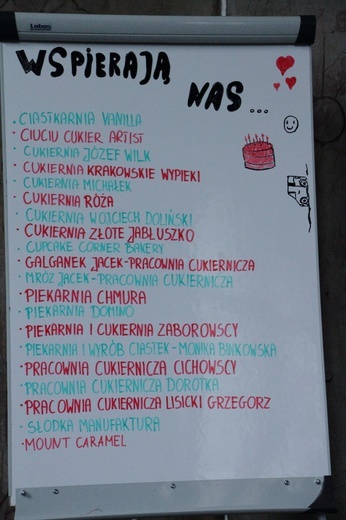 Lubos
WSPIERAJĄ
NAS...
· CIASTKARNIA VANILLA
· CIUCIU CUKIER ARTIST
· CUKIERNIA JÓZEF WILK
· CUKIERNIA KRAKOWSKIE WYPIEKI
· CUKIERNIA MICHAŁEK
· CUKIERNIA RÓŻA
· CUKIERNIA WOJCIECH DOLIŃSKI
· CUKIERNIA ZŁOTE JABŁUSZKO
· CUPCAKE CORNER BAKERY
· GALGANEK JACEK-PRACOWNIA CUKIERNICZA
· MRÓZ JACEK-PRACOWNIA CUKIERNICZA
· PIEKARNIA CHMURA
· PIEKARNIA DOMINO
· PIEKARNIA I CUKIERNIA ZABOROWSCY
· PIEKARNIA I WYRÓB CIASTEK-MONIKA BINKOWSKA
· PRACOWNIA CUKIERNICZA CICHOWSCY
· PRACOWNIA CUKIERNICZA DOROTKA
· PRACOWNIA CUKIERNICZA LISICKI GRZEGORZ
· SŁODKA MANUFAKTURA
· MOUNT CARAMEL